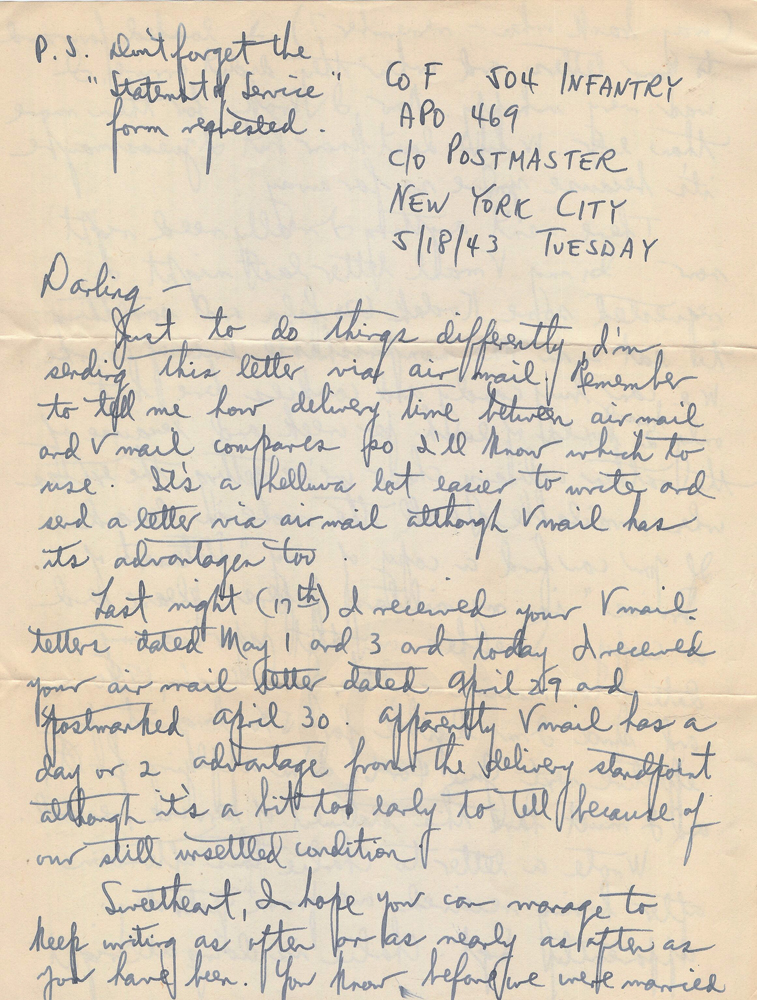 P.S. Don't forget the
"Statement of Service"
form requested.
Co F 504 INFANTRY
APO 469
c/o POSTMASTER
NEW YORK CITY
5/18/43 TUESDAY
Darling —
Just to do things differently, I'm
sending this letter via air mail. Remember
to tell me how delivery time between air mail
and V mail compares so I'll know which to
use. It's a helluva lot easier to write and
send a letter via air mail although V mail has
its advantages too.
Last night (17th) I received your V mail
letters dated May 1 and 3 and today I received
your air mail letter dated April 29 and
postmarked April 30. Apparently V mail has a
day or 2 advantage from the delivery standpoint
although it's a bit too early to tell because of
our still unsettled condition.
Sweetheart, I hope you can manage to
keep writing as often or as nearly as often as
you have been. You know, before we were married